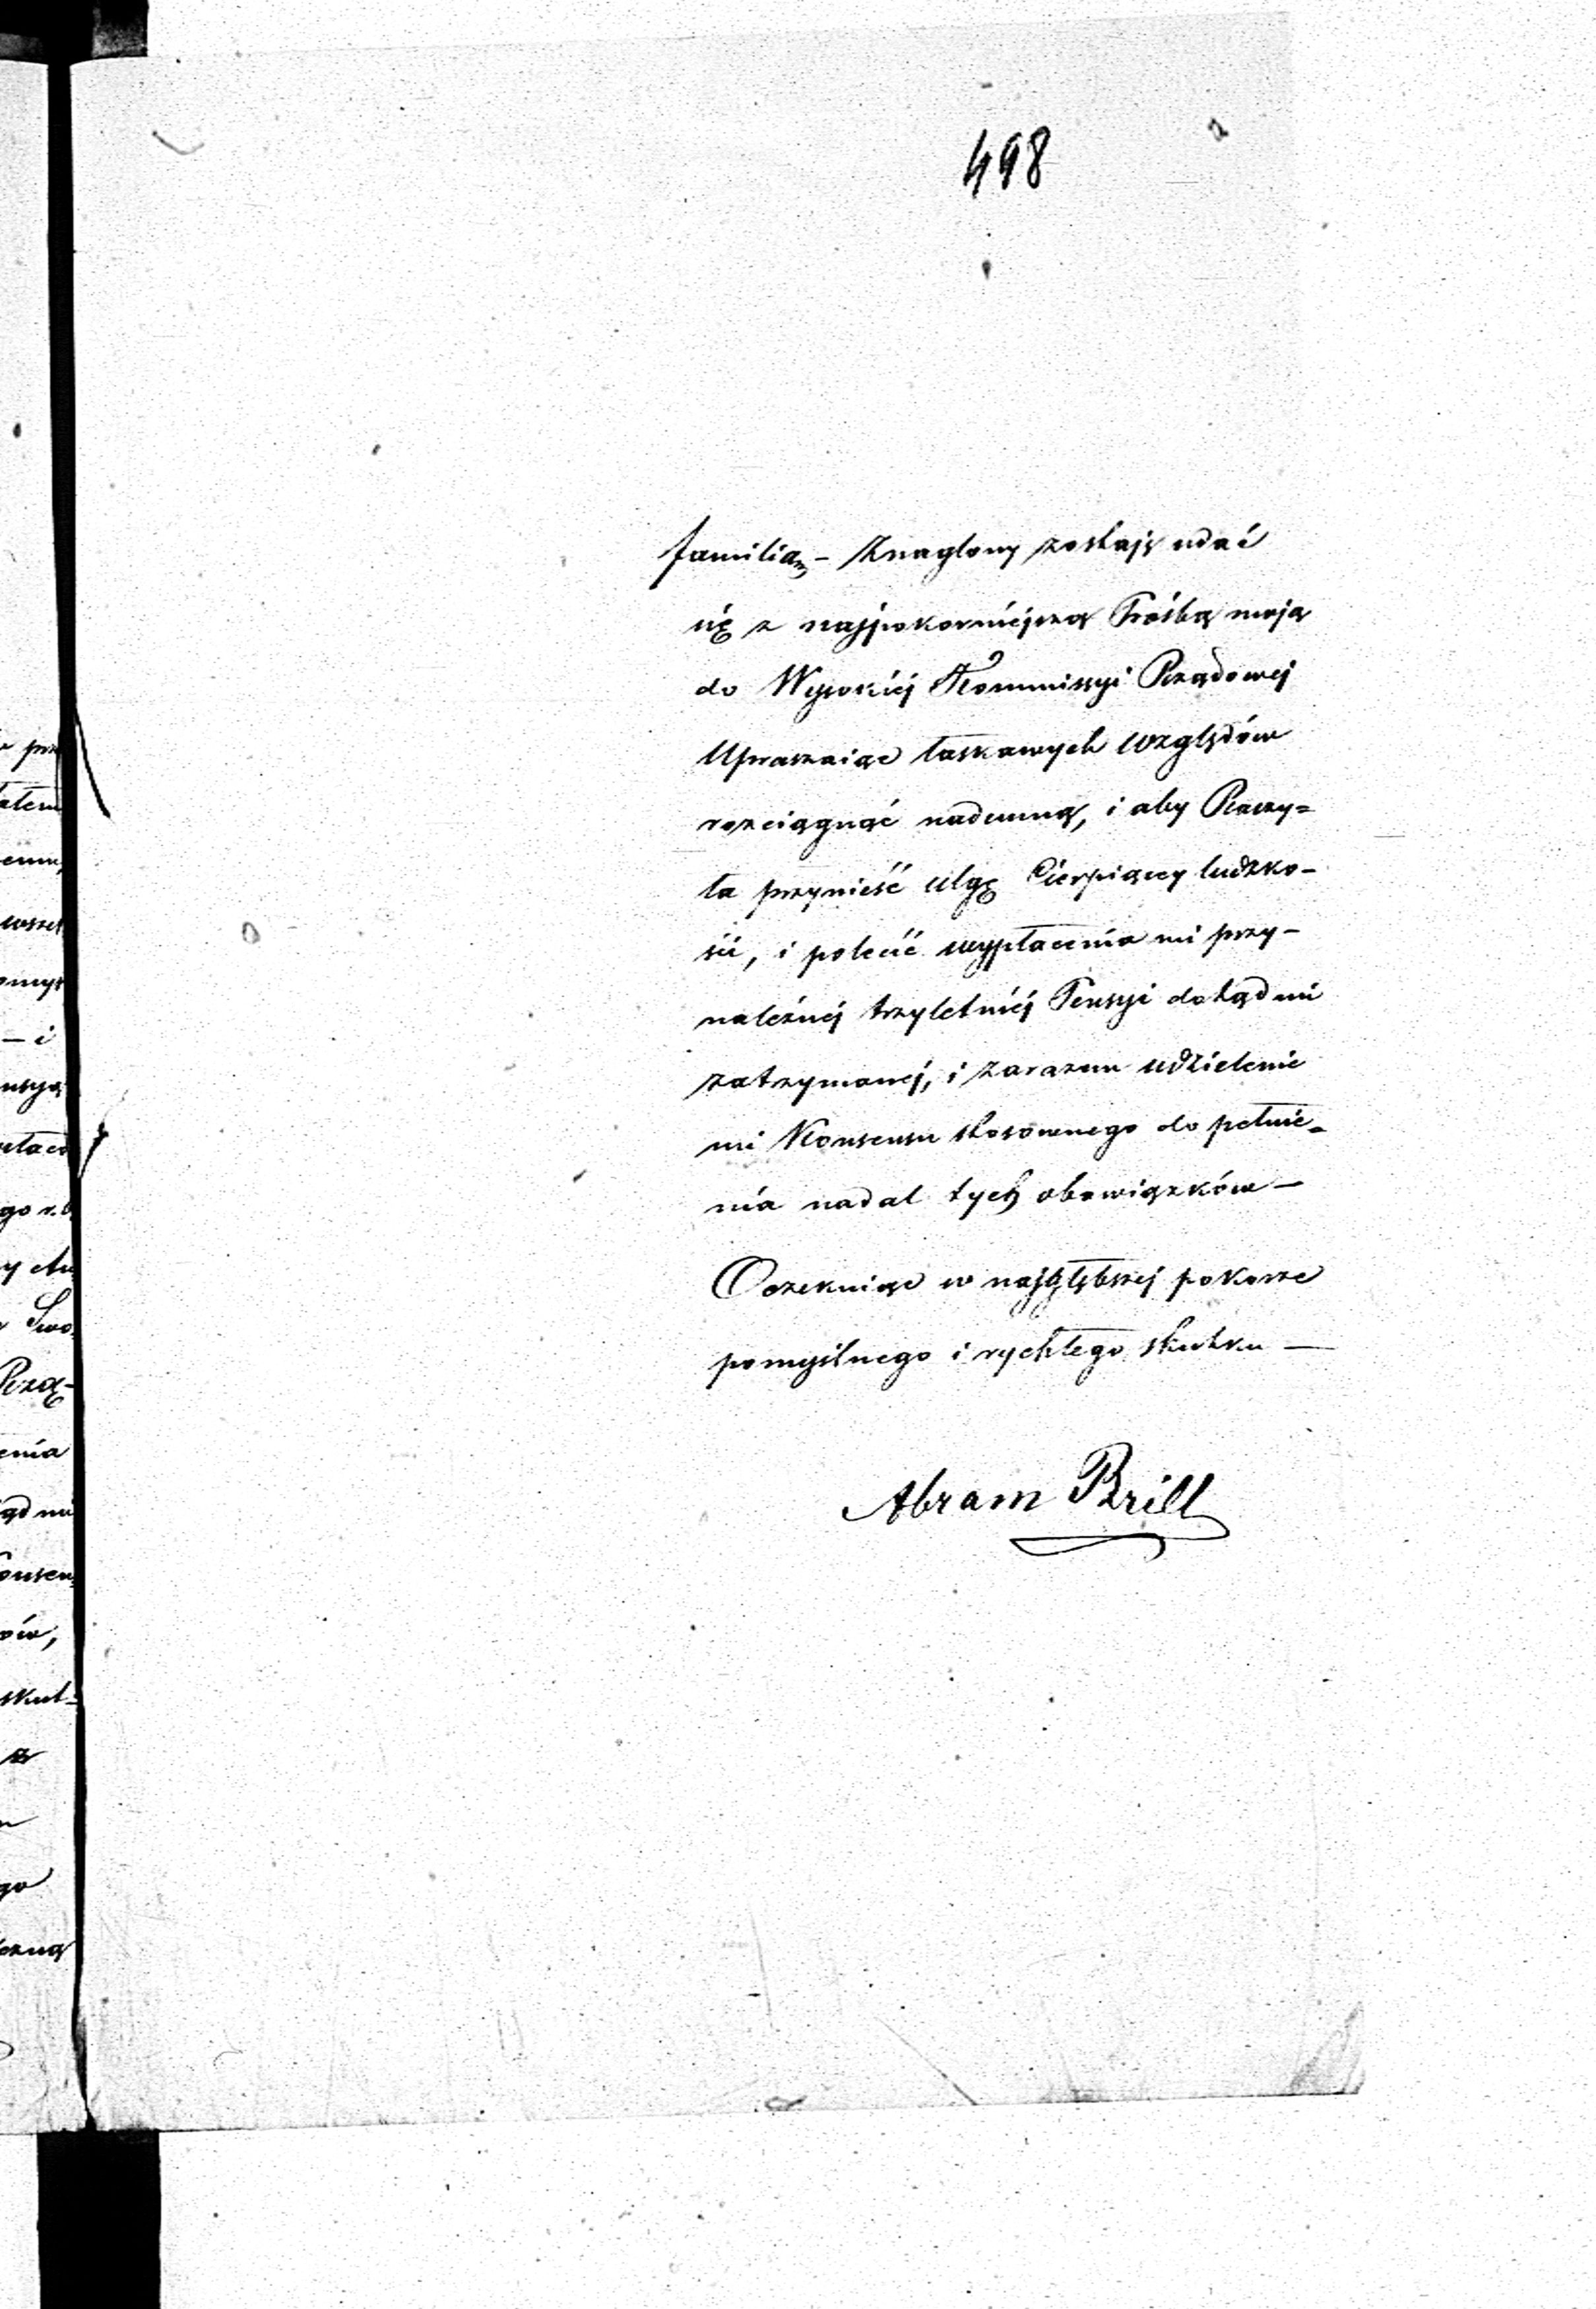 498
familią – Znaglony zostaję udać
się z najpokorniejszą Prośbą moją
do Wysokiéj Kommissyi Rządowej
Upraszaiąc łaskawych względów
rozciągnąć nademną, i aby Raczy=
ła przynieść ulgę Cierpiącey ludzko-
ści, i polecić wypłacenia mi przy-
należnéj trzyletniéj Pensyi dotąd mi
zatrzymanéj, i zarazem udzielenie
mi Konsensu stosownego do pełnie-
nia nadal tych obowiązków –
Oczekuiąc w najgłębszej pokorze
pomyślnego i rychłego skutku —
Abram Brill